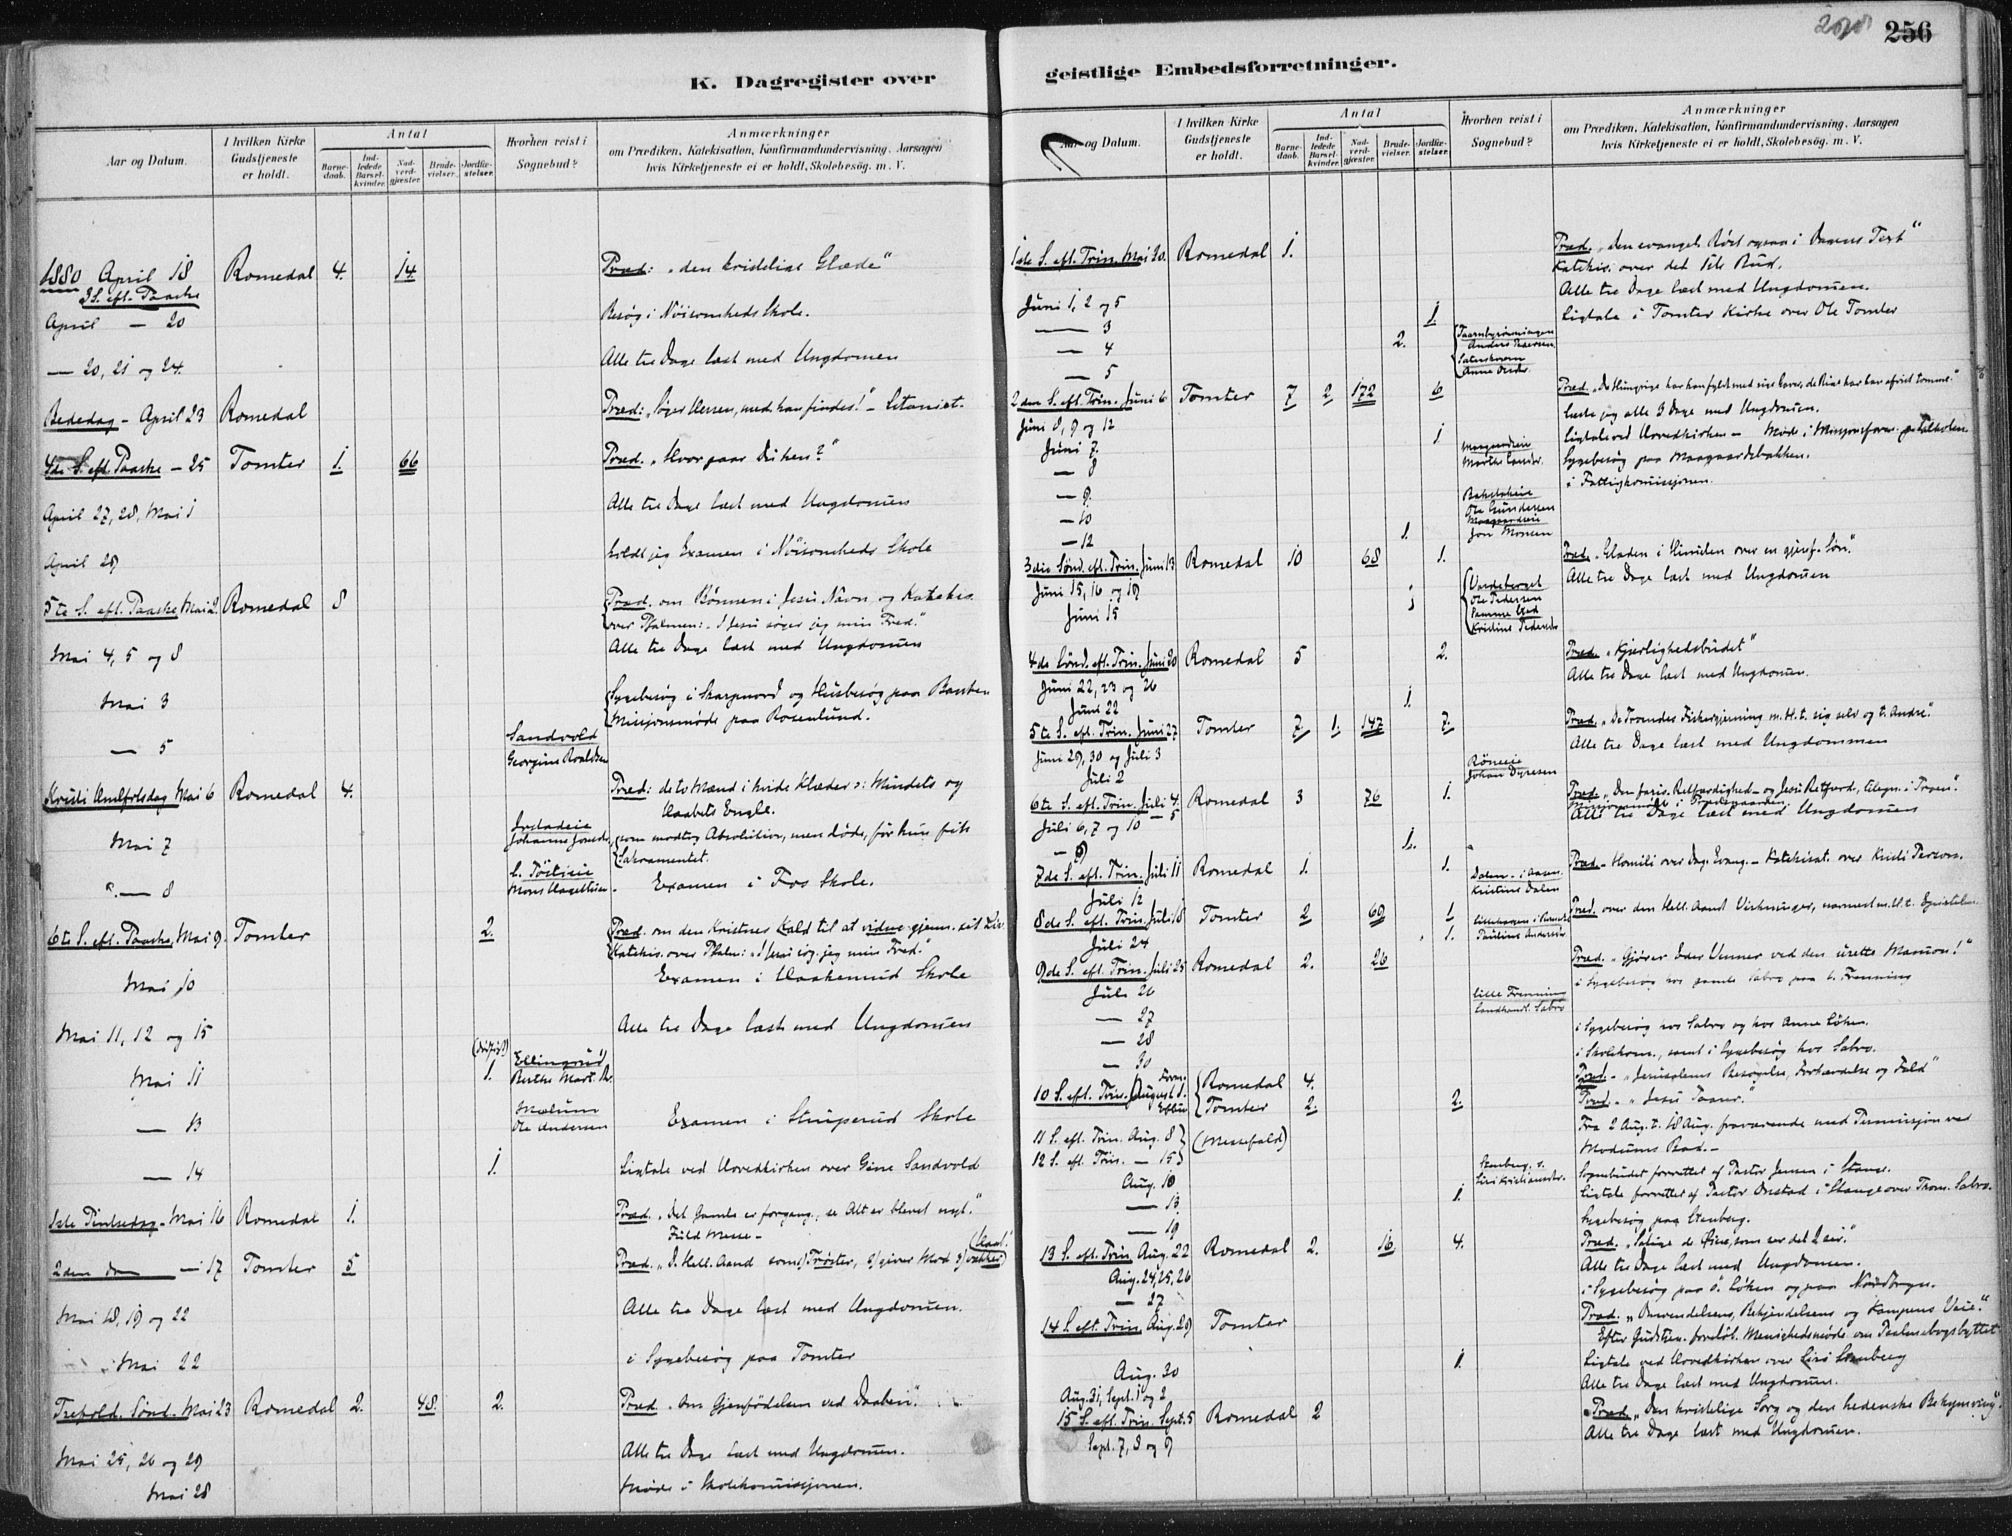 K. Dagregister over
Aar og Datum.
I hvilken Kirke Gudstjeneste er holdt.
Antal
Barne-daab.
Ind-ledede Barsel-kvinder.
Nad-verd-gjæster.
Brude-vielser.
Jordfæ-stelser.
Hvorhen reist i Sognebud?
Anmærkninger
om Prædiken, Katekisation, Konfirmandundervisning, Aarsagen
hvis Kirketjeneste ei er holdt, Skolebesög. m. V.
1880 April 18 Romedal 4. 14 Præd: "den kristelige Glæde"
3 S. eft. Paaske
April — 20 Besøg i Nöisomheds Skole.
— 20, 21 og 24. Alle tre Dage læst med Ungdomen
Bededag - April 23 Romedal Præd: "Søger Herren, med han findes!" - Litaniet.
4de S. eft. Paaske - 25 Tomter 1. 66 Præd. "Hvor gaar Du hen?"
April 27, 28, Mai 1 Alle tre Dage læst med Ungdomen
April 29 holdt jeg Examen i Nöisomheds Skole
5te S. eft. Paaske Mai 2. Romedal 8 Præd. om Bönnen i Jesu Navn, og Katekis.
over Psalmen: "I Jesu søger jeg min Fred."
Mai 4, 5 og 8 Alle tre Dage læst med Ungdomen
Mai 3 Sygebesøg i Skarpnord og Husbesøg paa Bakken
Missionsmøde paa Rosenlund.
— 5 Sandvold
Georgine Roaldsen
Kristi Himlfartsdag Mai 6 Romedal 4. Præd: de to Mænd i hvide Klæder: Mindets og
Haabets Engle.
Mai 7 Johanne som modtog Absolution, men døde, før hun fik
Sakramentet.
— 8 Examen i Fos Skole.
6te S. eft. Paaske, Mai 9. Tomter 2. Præd. om den Kristnes Kald til at vidne gjenn. sit Liv
Katekis. over Psalm: "I Jesu søg. jeg min Fred."
Mai 10 Examen i Haakenrud Skole
Mai 11, 12 og 15 Alle tre Dage læst med Ungdomen
Mai 11 1. Ellingsrud
Berthe Mart.
— 13 Mælum
Ole Andersen Examen i Stuperud Skole
— 14 1. Ligtale ved Hovedkirken over Gine Sandvold
1ste Pintsedag - Mai 16 Romedal 1. Præd. "Det Gamle er forgang., se Alt er blevet nyt."
Fuld Messe -
2den do — 17 Tomter 5 Præd. "D. Hell. Aand som Trøster, giver Mod
Mai 18, 19 og 22 Alle tre Dage læst med Ungdomen.
Mai 22 i Sygebesøg paa Tomter
Trefold. Sönd. Mai 23 Romedal 2. 48. 2. Præd. "Om Gjenfödelsen ved Daaben."
Mai 25, 26 og 29 Alle tre Dage læst med Ungdomen.
Mai 28 Møde i Skolekomissjonen.
256
geistlige Embedsforretninger.
Aar og Datum.
I hvilken Kirke Gudstjeneste er holdt.
Antal
Barne-daab.
Ind-ledede Barsel-kvinder.
Nad-verd-gjæster.
Brude-vielser.
Jordfæ-stelser.
Hvorhen reist i Sognebud?
Anmærkninger
om Prædiken, Katekisation, Konfirmandundervisning, Aarsagen
hvis Kirketjeneste ei er holdt, Skolebesög. m. V.
1ste S. eft. Trin. Mai 30. Romedal 1. Præd. "den evangel. Røst ogsaa i Dagens Text"
Katekis. over det 1ste Bud.
Juni 1, 2 og 5 Alle tre Dage læst med Ungdomen.
— 3 1. Ligtale i Tomter Kirke over Ole Tomter
— 4 2.
Anders Pedersen
— 5
2den S. eft. Trin. Juni 6 Tomter 7 2 172 6
Juni 8, 9 og 12 læste jeg alle 3 Dage med Ungdomen.
Juni 7. 1 Ligtale ved Hovedkirken -
— 8 Sygebesøg paa Maagaardsbakken.
— 9. i Fattigkomissjonen.
— 10 Ole Gundersen
— 12 1. Jon Monsen
3die Sønd. eft. Trin. Juni 13 Romedal 10 68 1. Præd. "Glæden i Himlen over en gjenf. Søn."
Juni 15, 16 og 19 Alle tre Dage læst med Ungdomen
Juni 15 Vardeberget
Ole Pedersen
Kristine Pedersdr.
4de Sønd. eft. Trin. Juni 20 Romedal 5 2. Præd. "Kjærlighedsbudet"
Juni 22, 23 og 26 Alle tre Dage læst med Ungdomen.
Juni 22 1.
5te S. eft. Trin. Juni 27 Tomter 7. 1. 147 7. Præd. "De Troendes Fiskergjerning m. H. t. sig selv og t. Andre."
Juni 29, 30 og Juli 3 Alle tre Dage læst med Ungdommen
Juli 2 Johan Dyresen
6te S. eft. Trin. Juli 4. Romedal 3 76 1. Præd. "Den faris. Retfærdighed - og Jesu Retfærd.
— 5
Juli 6, 7 og 10 Alle tre Dage læst med Ungdomen
— 9 1.
7de S. eft. Trin. Juli 11 Romedal 1. 1. Præd. - Homili over Dag. Evang. - Katekisat. over Kristi Person.
Juli 12 Dalen i Aasen
Kristine Dalen
8de S. eft. Trin. Juli 18 Tomter 2 69 1 Præd. over den Hell. Aands Virkninger
Juli 24 1. Pauline Andersdr.
9de S. eft. Trin. Juli 25 Romedal 2. 26 Præd. "Gjører Eder Venner ved den urette Mamon!"
Juli 26 Lille Frenning
Landhandl. Sabro
— 27 i Sygebesøg hos Sabro og hos Anne Löken.
— 28 i Skolekom., samt i Sygebesøg hos Sabro.
— 30
10 S. eft. Trin. August 1. Romedal 4. Præd. - "Jerusalems Besøgelse, Forhærdelse og Fald"
Tomter 2. 2. Præd. - "Jesu Taarer."
11 S. eft. Trin. Aug. 8 (Messefald) Fra 2 Aug. t. 18 Aug. fraværende med Permissjon ved
12 S. eft. Trin. — 15 Modums Bad. -
Aug. 10 Stenberg, Siri Kristiansdr. Sognebudet forrettet af Pastor Jensen i Stange.
— 13 1. Ligtale forrettet af Pastor Onstad i Stange over Thom. Sabro.
— 19 Sygebesøg paa Stenberg.
13 S. eft. Trin. Aug. 22 Romedal 2. 16 4. Præd. "Salige de Øine, som ser det I ser."
Aug. 24, 25, 26 Alle tre Dage læst med Ungdomen.
— 27 i Sygebesøg paa Løken og paa Nordbryn.
14 S. eft. Trin. Aug. 29 Tomter Præd. "Omvendelsens, Bekjendelsens og Kampens Veie."
Efter Gudstjen. foreløb. Menighedsmøde om Psalmebogsbyttet
Aug. 30 1. Ligtale ved Hovedkirken over Siri Stenberg
Aug. 31, Sept. 1 og 2 Alle tre Dage læst med Ungdomen.
15 S. eft. Trin. Sept. 5 Romedal 2 Præd. "Den kristelige Sorg og den hedenske Bekymring."
Sept. 7, 8 og 9 Alle tre Dage læst med Ungdomen.